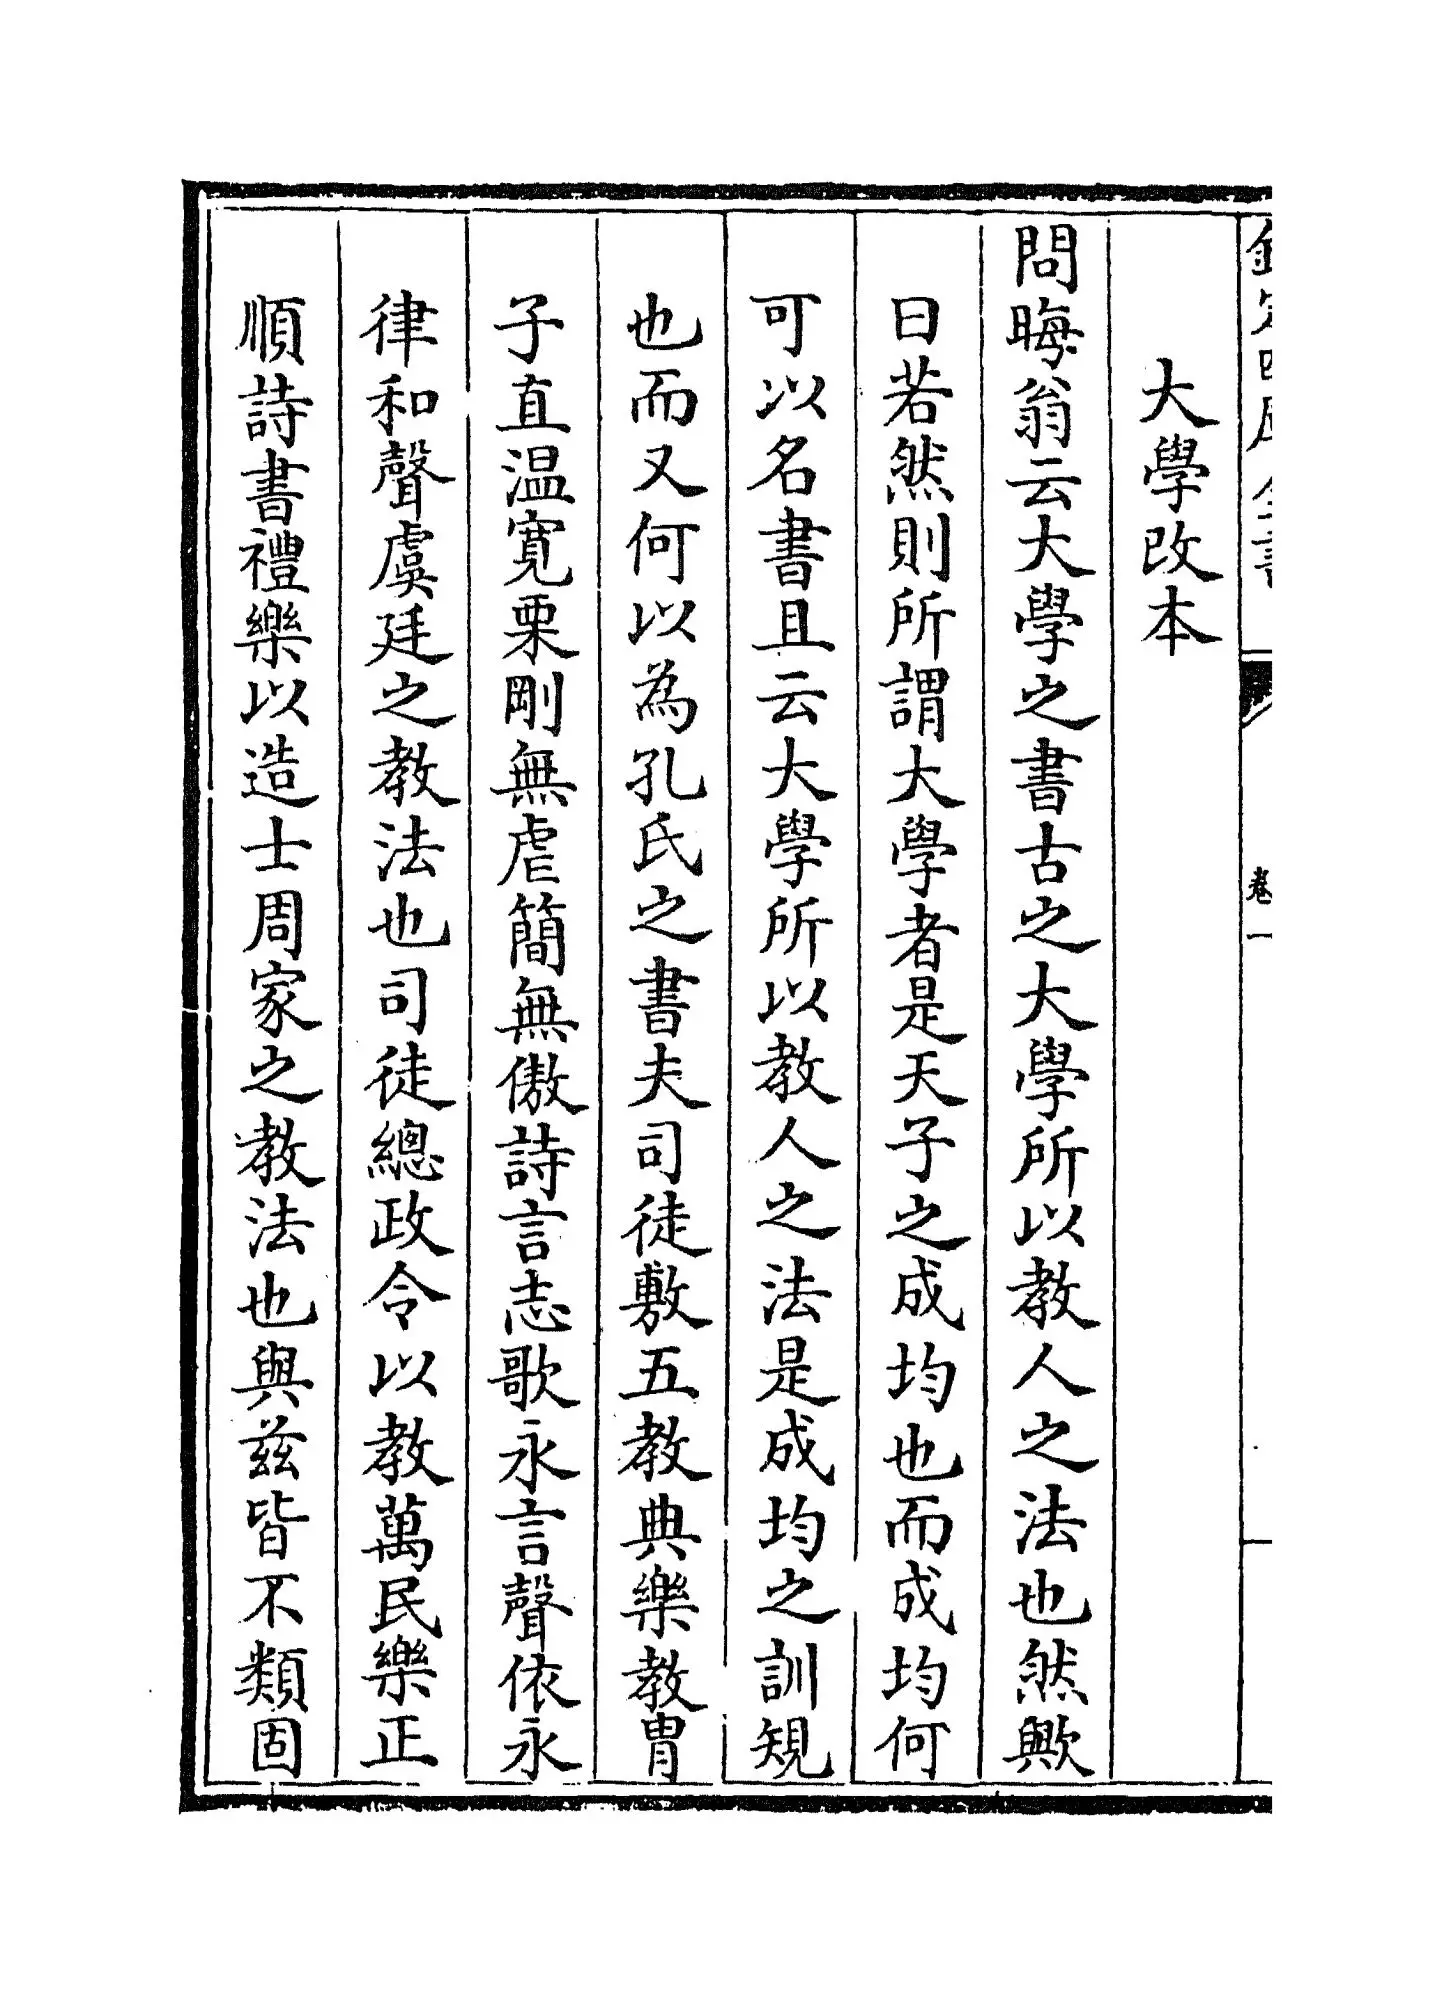 欽定四庫全書
卷一
大學改本
問晦翁云大學之書古之大學所以教人之法也然歟
曰若然則所謂大學者是天子之成均也而成均何
可以名書且云大學所以教人之法是成均之訓規
也而又何以為孔氏之書夫司徒敷五教典樂教胄
子直温寛栗剛無虐簡無傲詩言志歌永言聲依永
律和聲虞廷之教法也司徒總政令以教萬民樂正
順詩書禮樂以造士周家之教法也與兹皆不類固